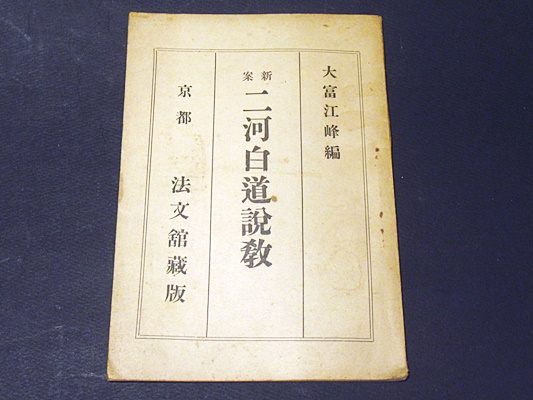 大富江峰編
新案
二河白道說教
京都 法文舘藏版